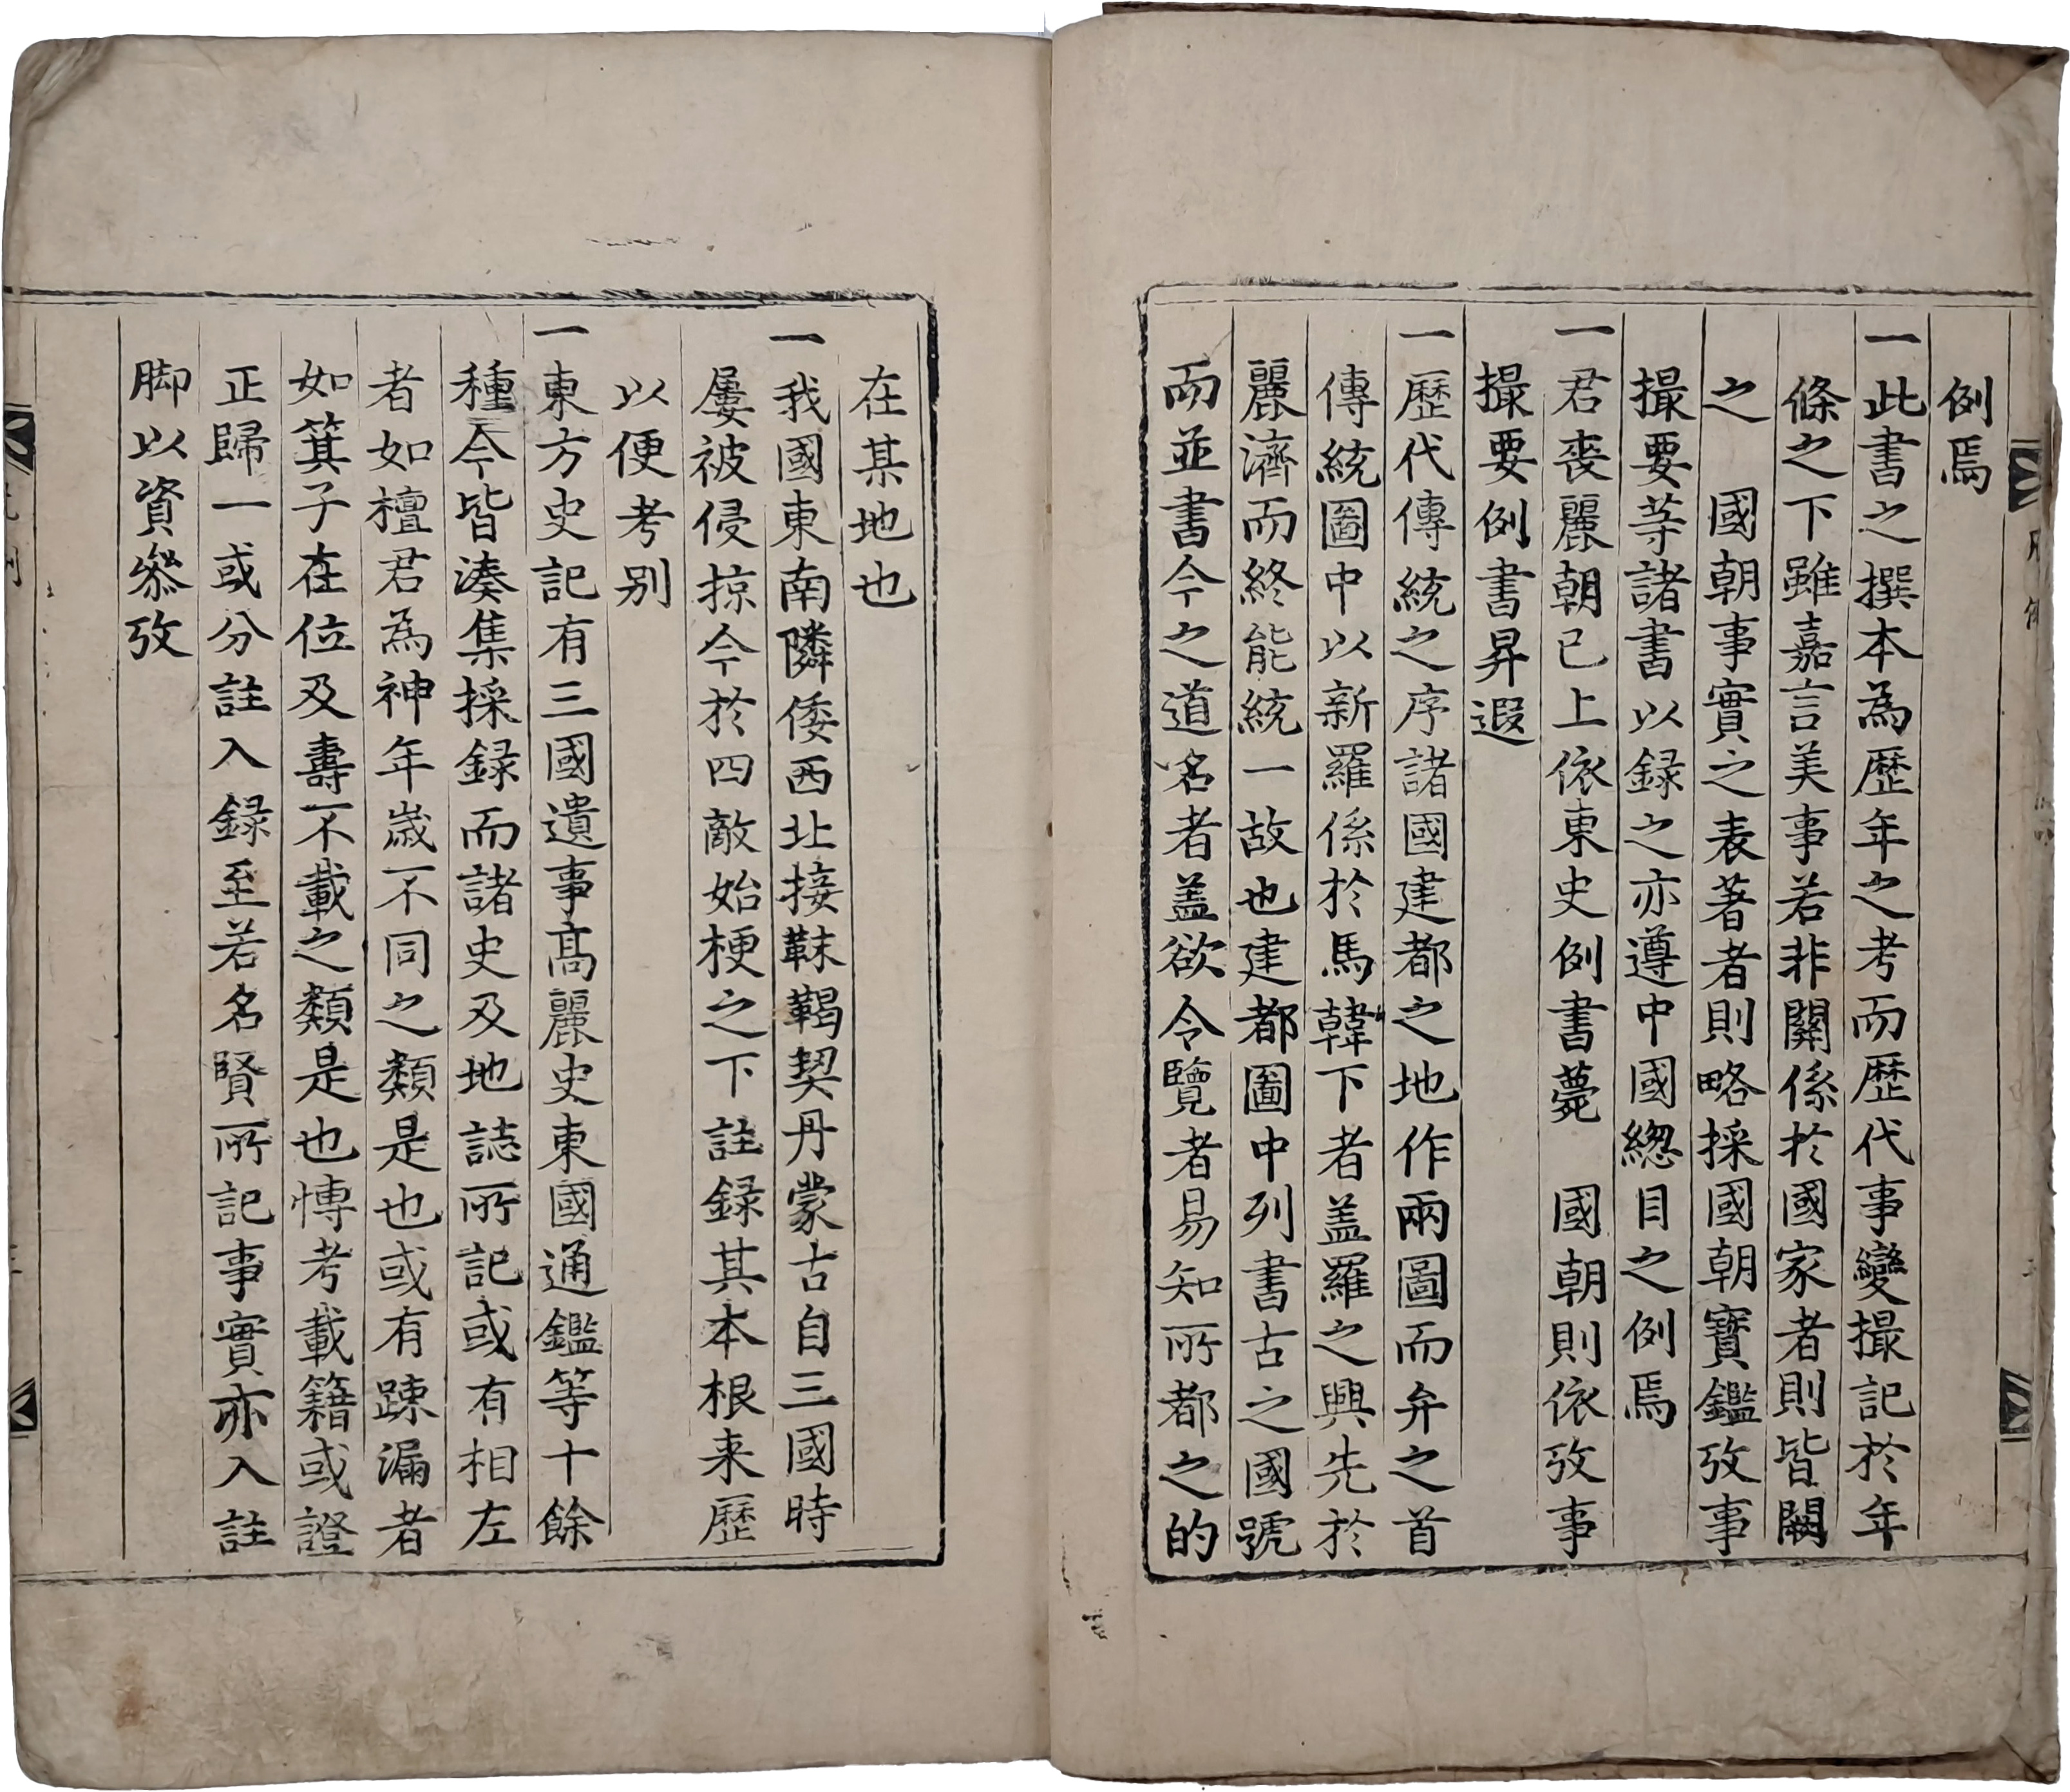 例焉
一此書之撰本為歷年之考而歷代事變撮記於年
條之下雖嘉言美事若非關係於國家者則皆闕
之　國朝事實之表著者則略採國朝寶鑑攷事
撮要等諸書以録之亦遵中國緫目之例焉
一君喪麗朝已上依東史例書薨　國朝則依攷事
撮要例書昇遐
一歷代傳統之序諸國建都之地作兩圖而弁之首
傳統圖中以新羅係於馬韓下者盖羅之興先於
麗濟而終能統一故也建都圖中列書古之國號
而並書今之道名者盖欲令覽者易知所都之的
在某地也
一我國東南隣倭西北接靺鞨契丹蒙古自三國時
屢被侵掠今於四敵始梗之下註録其本根来歷
以便考别
一東方史記有三國遺事髙麗史東國通鑑等十餘
種今皆湊集採録而諸史及地誌所記或有相左
者如檀君為神年歲不同之類是也或有踈漏者
如箕子在位及壽不載之類是也博考載籍或證
正歸一或分註入録至若名賢所記事實亦入註
脚以資叅攷